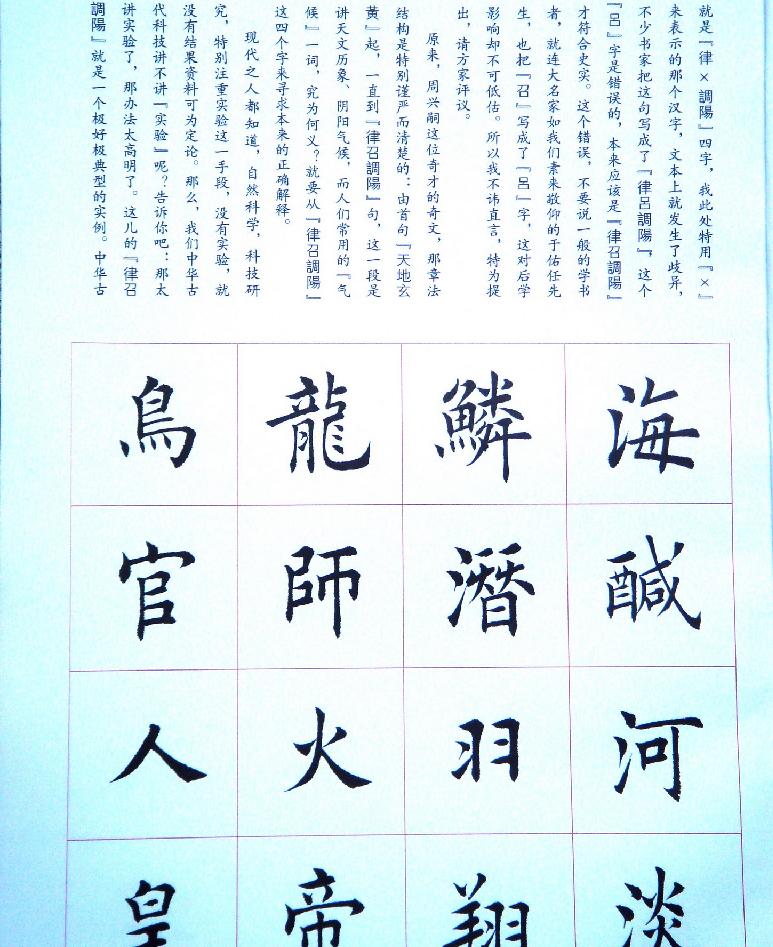 就是『律×調陽』四字，我此处特用『×』
来表示的那个汉字，文本上就发生了歧异，
不少书家把这句写成了『律呂調陽』，这个
『呂』字是错误的，本来应该是『律召調陽』
才符合史实。这个错误，不要说一般的学书
者，就连大名家如我们素来敬仰的于佑任先
生，也把『召』写成了『呂』字，这对后学
影响却不可低估。所以我不讳直言，特为提
出，请方家评议。
原来，周兴嗣这位奇才的奇文，那章法
结构是特别谨严而清楚的：由首句『天地玄
黄』起，一直到『律召調陽』句，这一段是
讲天文历象、阴阳气候，而人们常用的『气
候』一词，究为何义？就要从『律召調陽』
这四个字来寻求本来的正确解释。
现代之人都知道，自然科学，科技研
究，特别注重实验这一手段，没有实验，就
没有结果资料可为定论。那么，我们中华古
代科技讲不讲『实验』呢？告诉你吧：那太
讲实验了，那办法太高明了。这儿的『律召
調陽』就是一个极好极典型的实例。中华古
海鹹河淡
鱗潛羽翔
龍師火帝
鳥官人皇